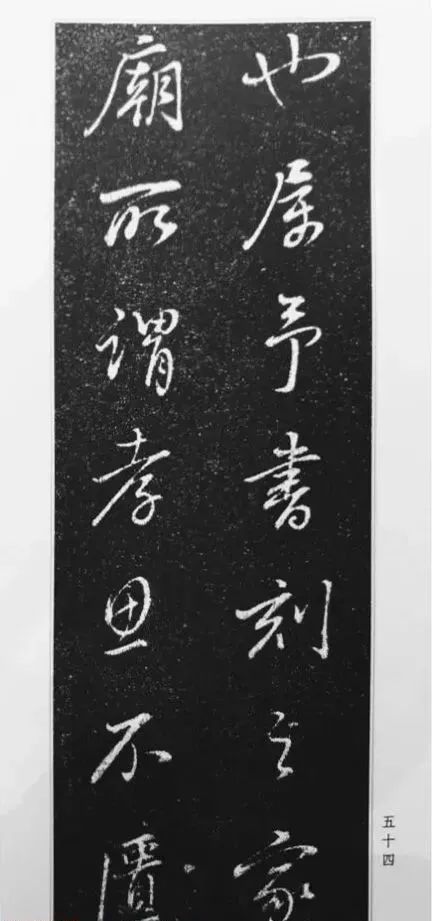 也属予書刻之家
廟所謂孝思不匱
五十四